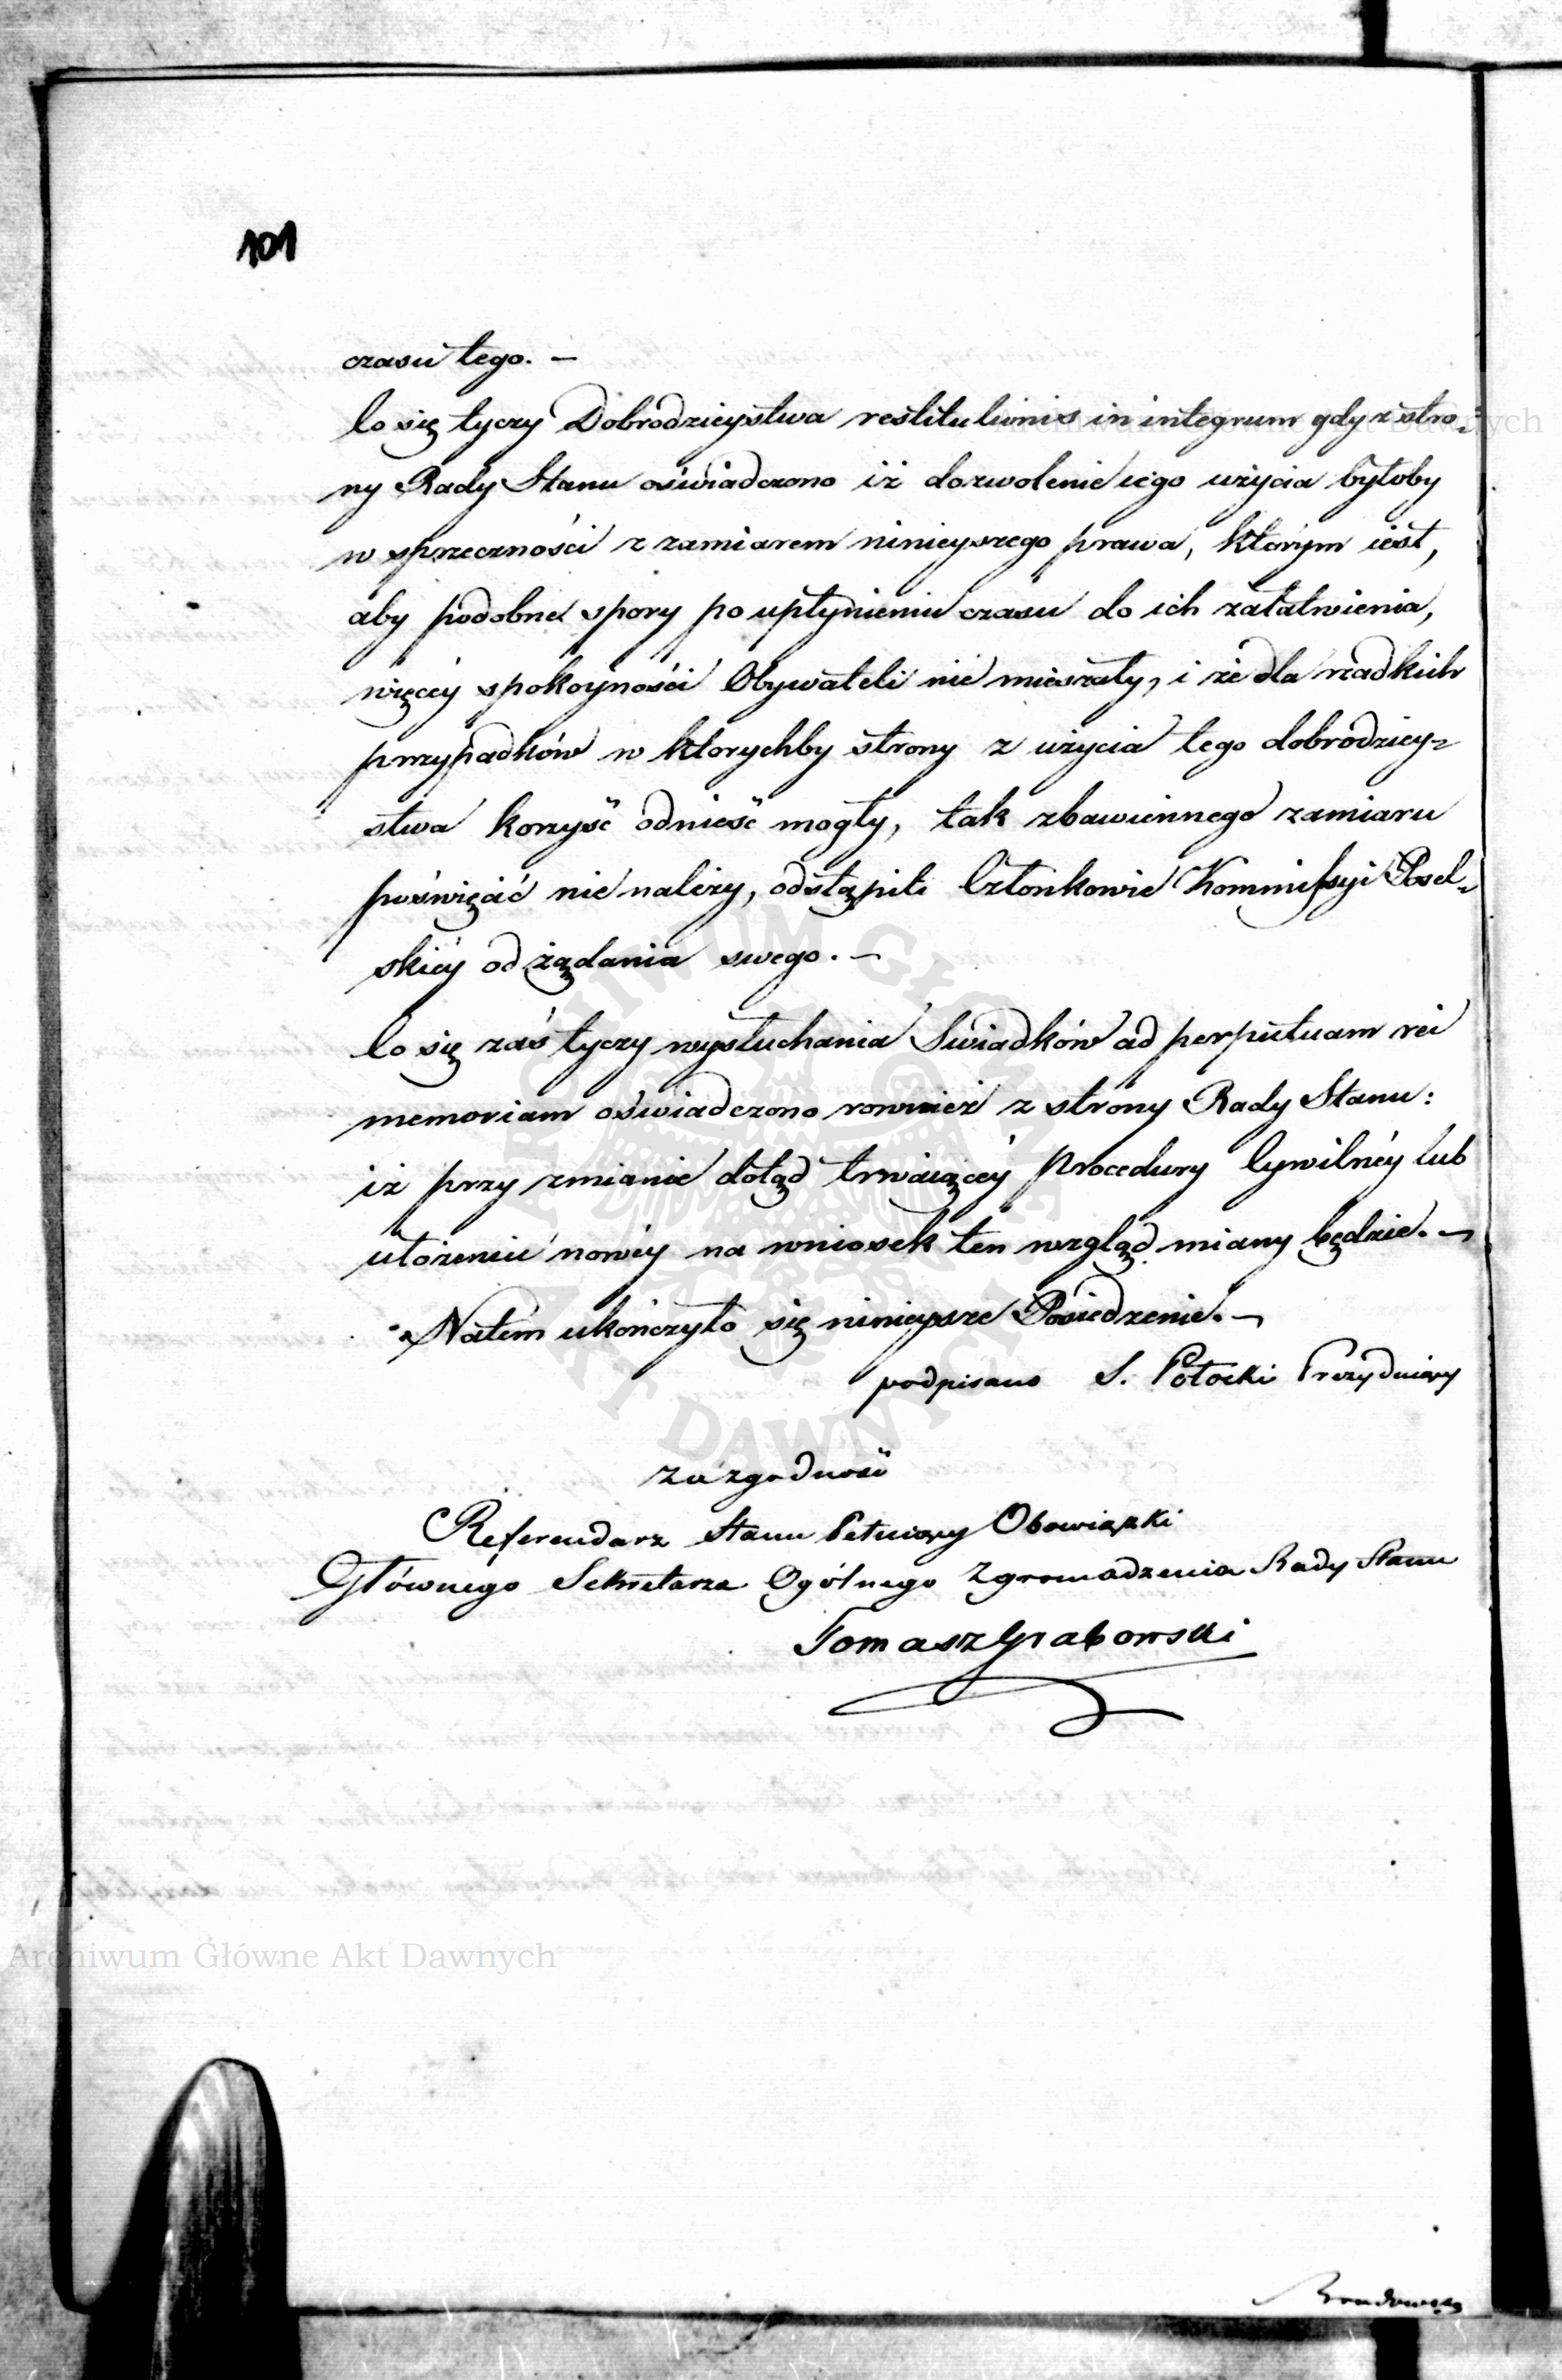 101
czasu tego. —
Co się tyczy Dobrodzieystwa restitutionis in integrum gdy z stro-
ny Rady Stanu oświadczono iż dozwolenie iego użycia byłoby
w sprzeczności z zamiarem ninieyszego prawa, którym iest,
aby podobne spory po upłynieniu czasu do ich załatwienia,
więcéy spokoyności Obywateli nie mieszały, i że dla rzadkich
przypadków w których by strony z użycia tego dobrodziey-
stwa korzyść odnieść mogły, tak zbawiennego zamiaru
poświęcać nie należy, odstąpili Członkowie Kommissyi Posel-
skiéy od żądania swego. —
Co się zaś tyczy wysłuchania Swiadków ad perpetuam rei
memoriam oświadczono rownież z strony Rady Stanu:
iż przy zmianie dotąd trwaiącéy Procedury Cywilnéy lub
ułożeniu nowéy na wniosek ten wzgląd miany będzie. —
Natém ukończyło się ninieysze Posiedzenie. —
podpisano S. Potocki Prezyduiący
Za zgodność
Referendarz Stanu Pełniący Obowiązki
Głównego Sekretarza Ogólnego Zgromadzenia Rady Stanu
Tomasz Grabowski
Archiwum Główne Akt Dawnych
Archiwum Główne Akt Dawnych
ARCHIWUM GŁÓWNE AKT DAWNYCH